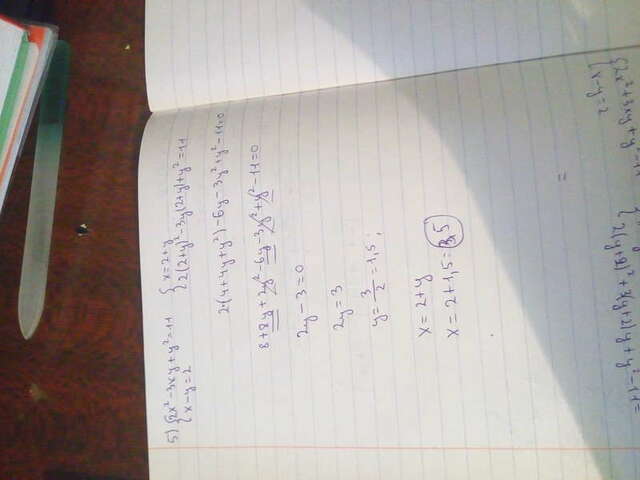 5) {2x²-3xy+y²=11 {x=2+y
{x-y=2 {2(2+y)²-3y(2+y)+y²=11
2·(4+4y+y²)-6y-3y²+y²-11=0
8+8y+2y²-6y-3y²+y²-11=0
2y-3=0
2y=3
y=3/2=1,5;
x=2+y
x=2+1,5=3,5
=
{x-y=2